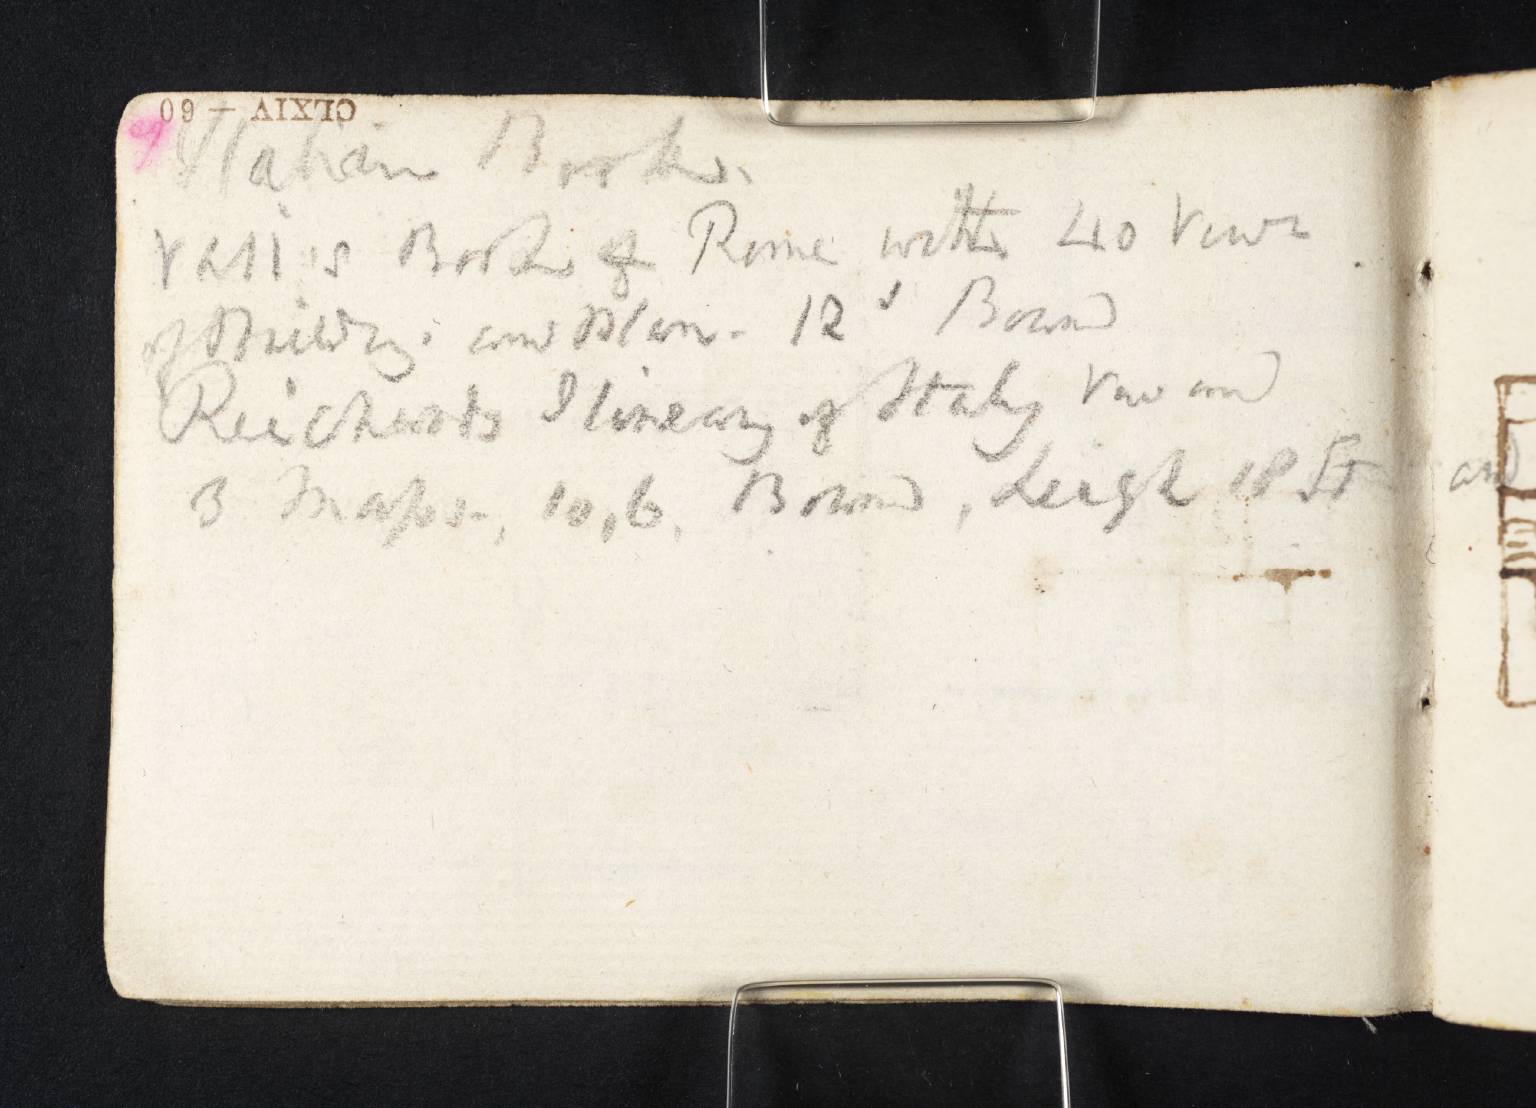 CLXIV — 60
Italian Books.
Vasi's Book of Rome with 40 Views
of Buildgs. and Plan - 12s Bound
Reichards Itinerary of Italy Vew and
3 Maps -, 10,6, Bound, Leigh 18 St